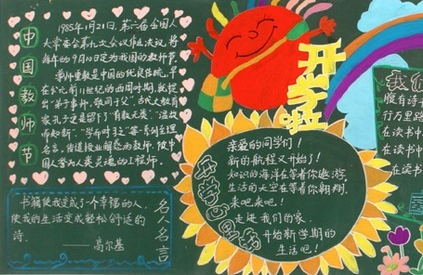 中国教师节
1985年1月21日，第六届全国人
大常委会第九次会议作出决议，将
每年的9月10日定为我国的教师节。
尊师重教是中国的优良传统，早
在公元前11世纪的西周时期，就提
出“弟子事师，敬同于父”，古代大教育
家孔子更是留下了“有教无类”、“温故
而知新”、“学而时习之”等一系列至理
名言。
中国教师
书籍使我变成了一个幸福的人，
使我的生活变成轻松舒适的
诗。
——高尔基
名人名言
开学啦
亲爱的同学们！
新的航程又开始了！
知识的海洋在等着你遨游，
生活的天空在等着你翱翔，
来吧来吧！
这是我们的家，
开始新学期的
生活吧！
我们
行万里路
在读书中
在读书
在读